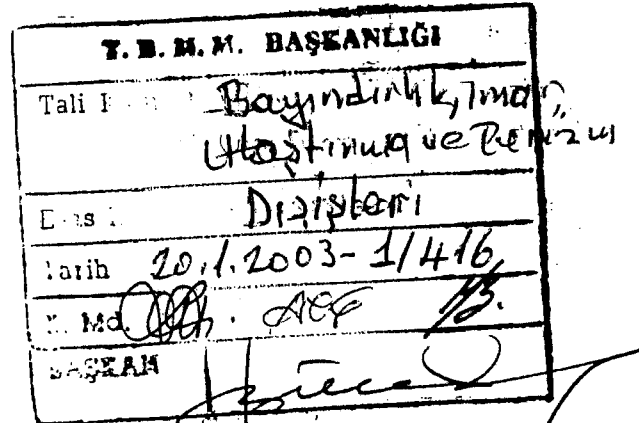 T. B. M. M. BAŞKANLIĞI
Tali Bayındırlık, İmar,
Ulaştırma ve Turizm
Dışişleri
Tarih 20.1.2003- 1/416
Md.
BAŞKAN